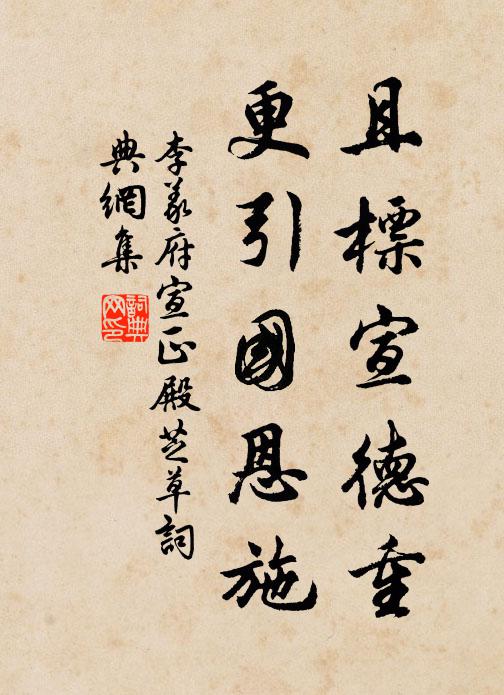 且標宣德重
更引國恩施
李義府宣正殿芝草詞
典網集
詞典
网印